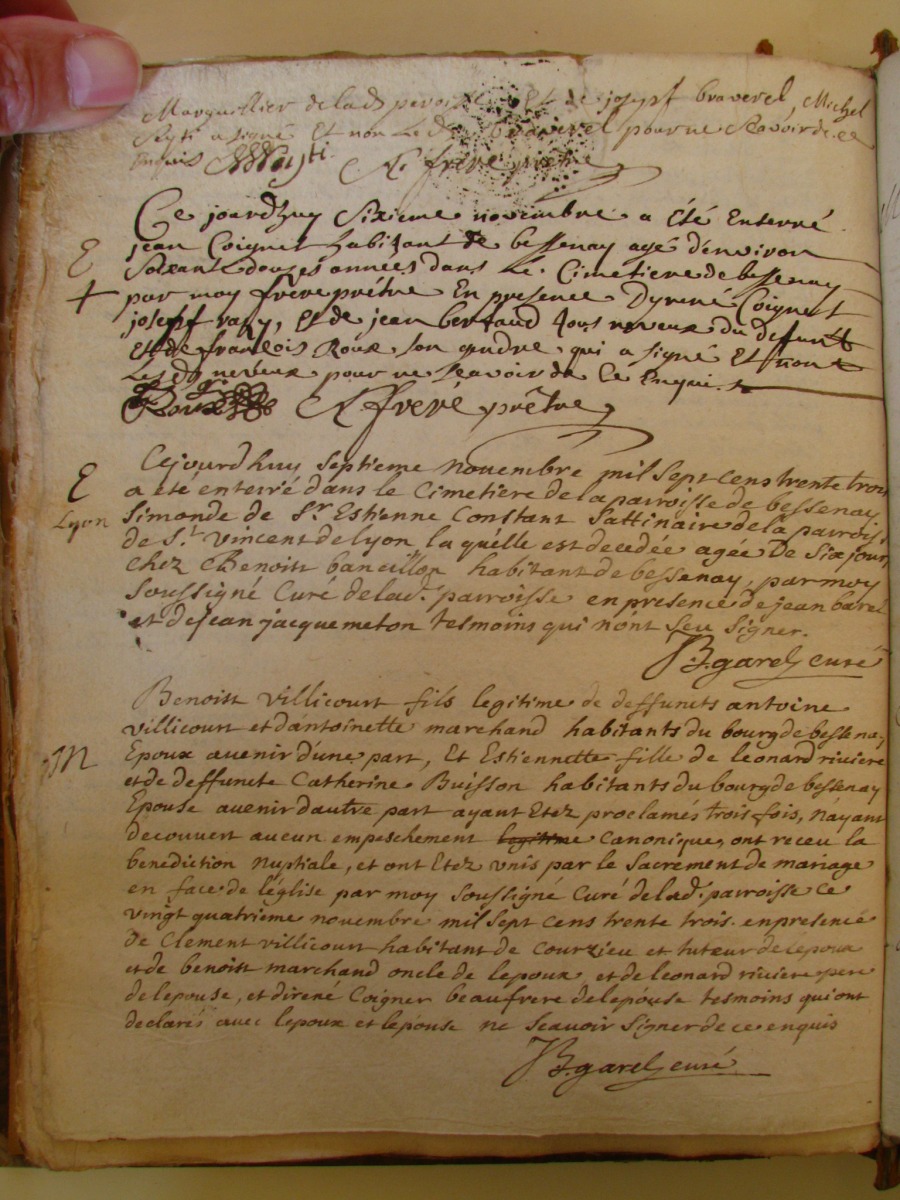 Marguillier de lad parroisse et de josepf braverel, Michel
a signé Et non Led braverel pour ne Scavoir de ce
Enquis N. freré prêtre
Ce jourdhuy Sixieme novembre a Eté Enterré
E
jean Coignet habitant de bessenay agé d'environ
Soixante douzes années dans Le Cimetiere de bessenay
par moy freré prêtre En presence Dyrené Coignet
josepf vaty, Et de jean bertaud tous neveux du defunt
Et de francois Roux son gendre qui a signé Et non
Lesd neveux pour ne Scavoir de Ce Enquis
Roux N. freré prêtre
Cejourdhuy Septieme novembre mil Sept cens trente trois
E
a eté enterré dans le Cimetiere de la parroisse de bessenay
Lyon
Simonde de Sr. Estienne Constant Sattinaire de la parroisse
de St. Vincent de lyon la quelle est decedée agée De Six jours
chez Benoist bancillon habitant de bessenay, par moy
Soussigné Curé de lad. parroisse en presence de jean barel
et de jean jacquemeton tesmoins qui n'ont Seu Signer.
B. garel curé
Benoist Villicourt fils legitime de deffuncts antoine
villicourt et dantoinette marchand habitants du bourg de bessenay
M
Epoux avenir d'une part, Et Estiennette fille de leonard riviere
et de deffuncte Catherine Buisson habitants du bourg de bessenay
Epouse avenir dautre part ayant Etez proclamés trois fois, n'ayant
decouvert aucun empeschement legitime Canonique, ont receu la
benediction nuptiale, et ont Etez unis par le Sacrement de mariage
en face de l'église par moy Soussigné Curé de lad. parroisse ce
vingt quatrieme novembre mil Sept cens trente trois. en presence
de Clement villicourt habitant de Courzieu et tuteur de lepoux
et de benoist marchand oncle de lepoux, et de leonard riviere pere
de lepouse, et direné Coigner beaufrere de lepouse tesmoins qui ont
declarés avec lepoux et lepouse ne Scavoir Signer de ce enquis
B. garel curé